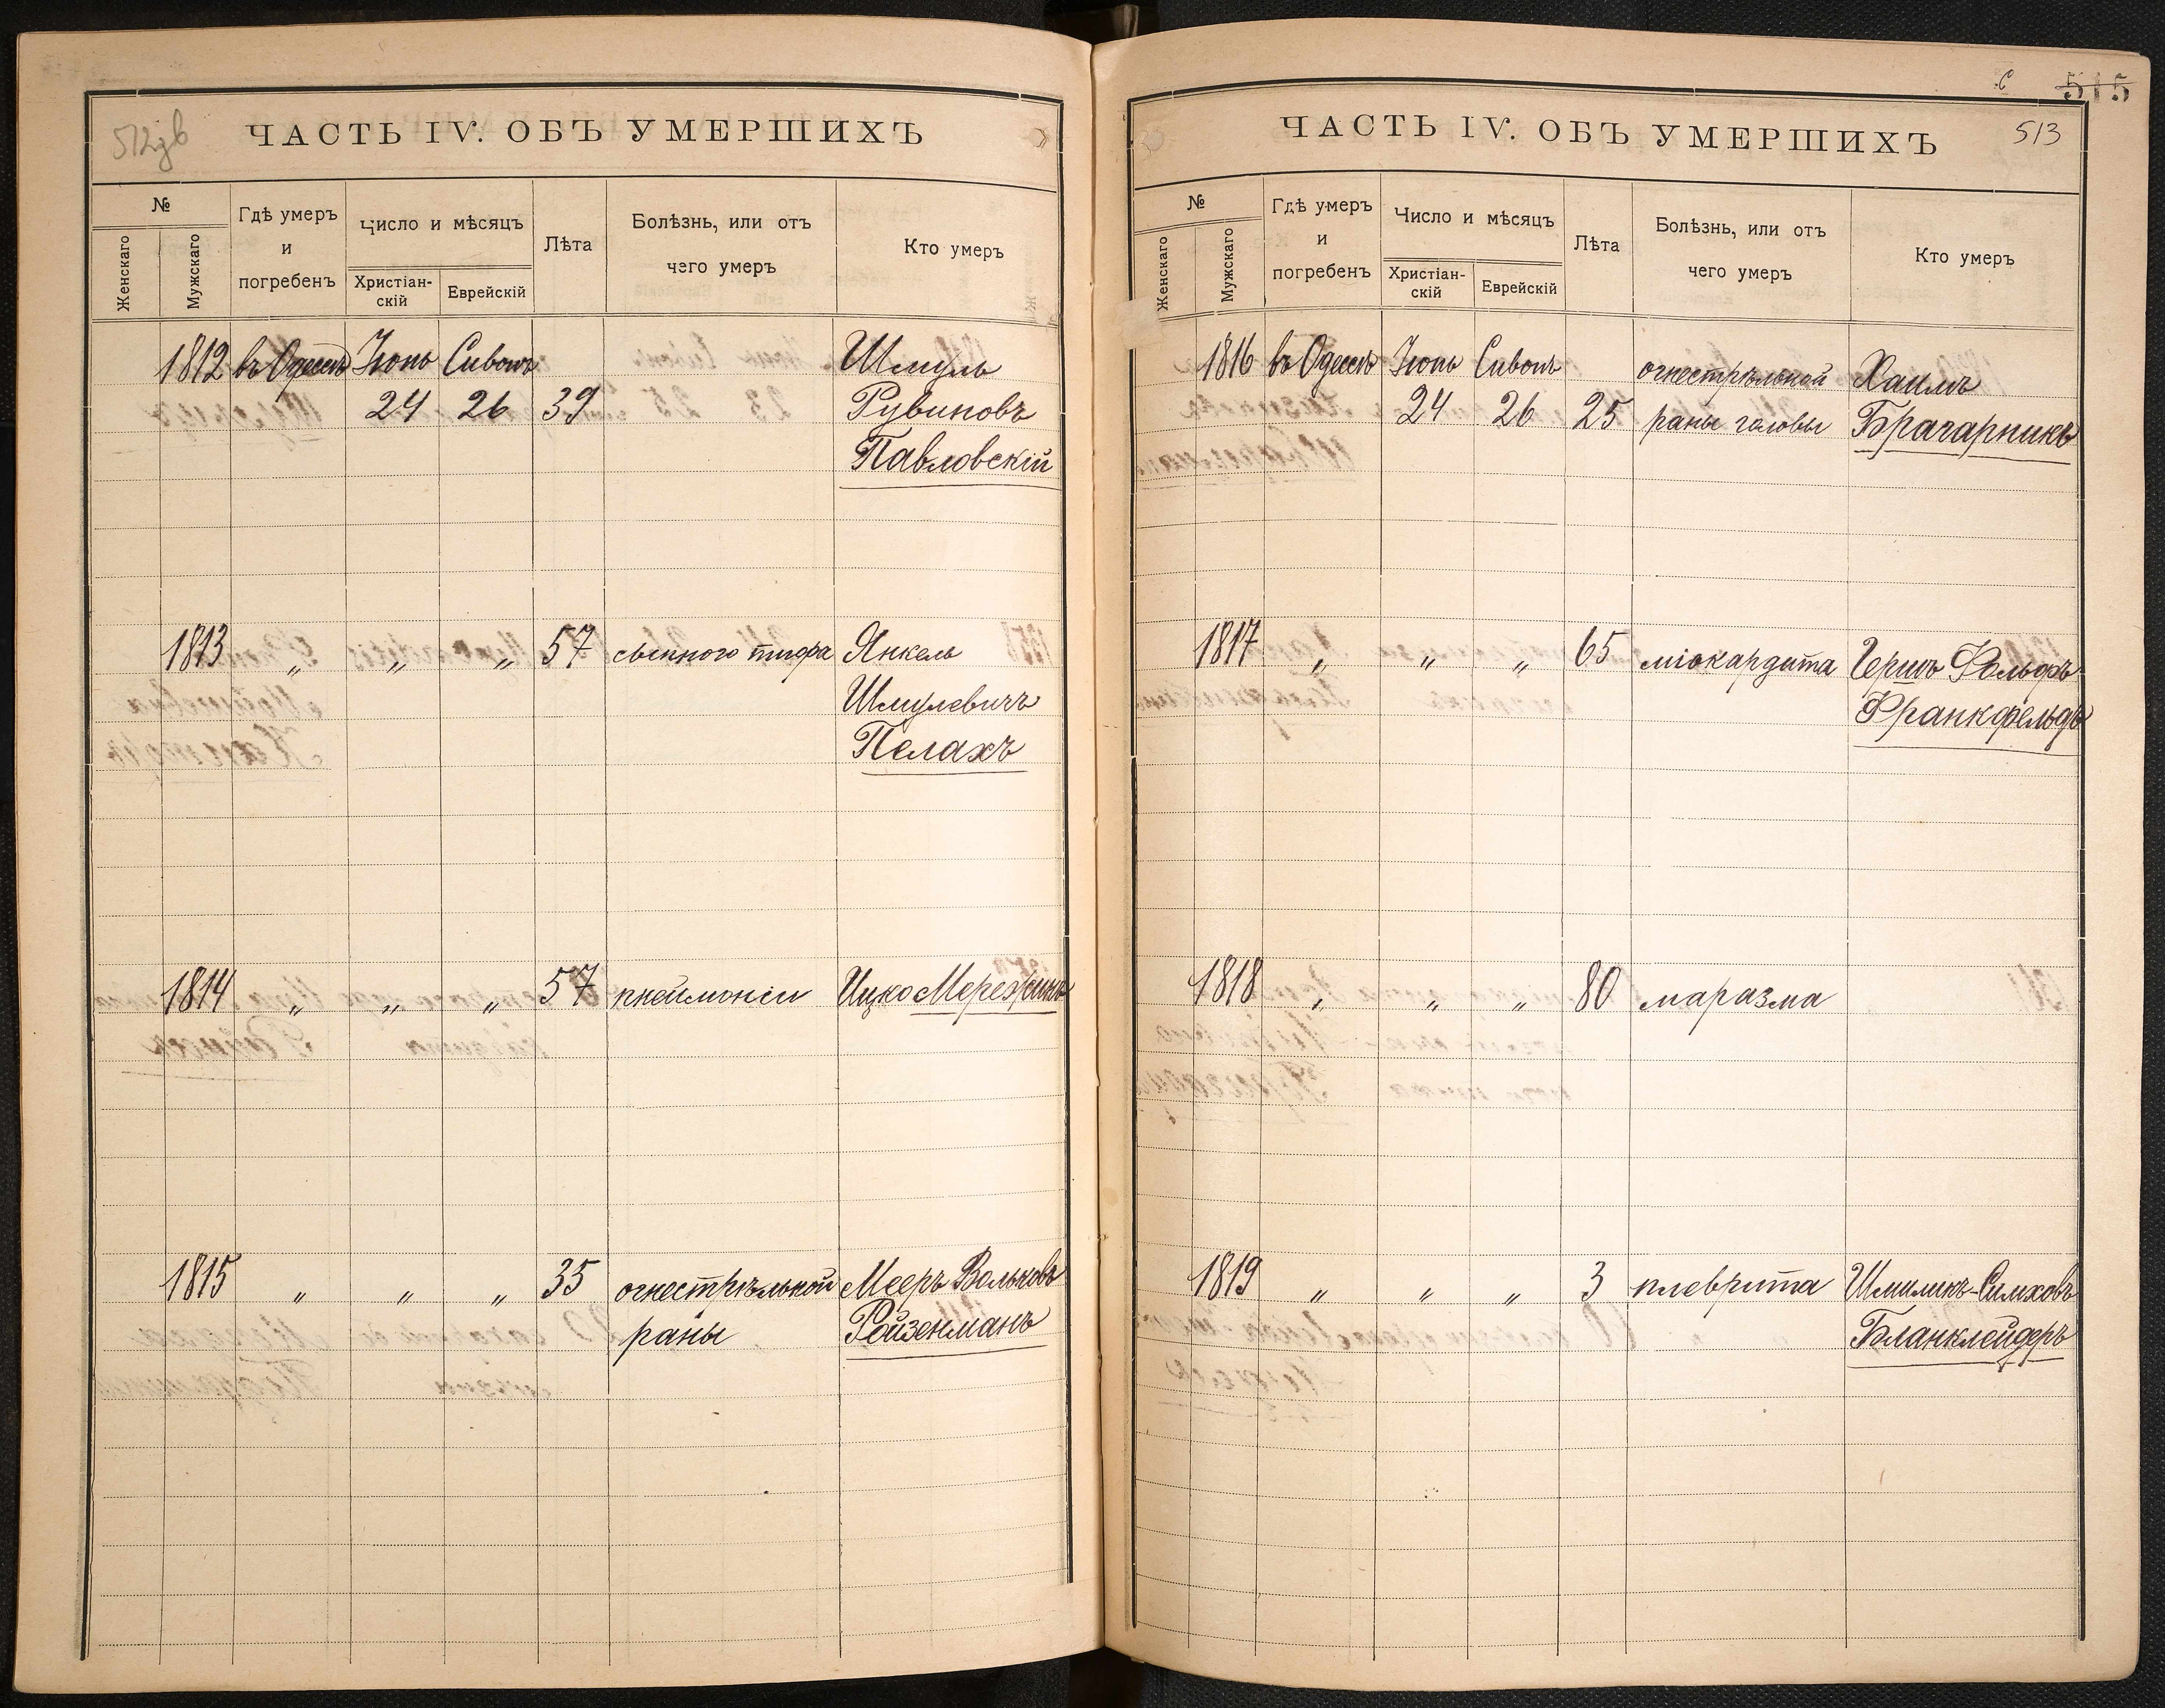 512зв
ЧАСТЬ IV. ОБЪ УМЕРШИХЪ
№
Женскаго
Мужскаго
Гдѣ умеръ
и
погребенъ
Число и мѣсяцъ
Христіан-
скій
Еврейскій
Лѣта
Болѣзнь, или отъ
чего умеръ
Кто умеръ
1812 въ Одессѣ Іюнь Сивонъ Шмуль
24 26 39 Рувиновъ
Павловскій
1813 „ „ „ 57 сыпного тифа Янкель
Шмулевичъ
Пелахъ
1814 „ „ „ 57 пнеймоніи Ицко Мережинъ
1815 „ „ „ 35 огнестрѣльной Мееръ Вольковъ
раны Ройзенманъ
с 515
513
ЧАСТЬ IV. ОБЪ УМЕРШИХЪ
№
Женскаго
Мужскаго
Гдѣ умеръ
и
погребенъ
Число и мѣсяцъ
Христіан-
скій
Еврейскій
Лѣта
Болѣзнь, или отъ
чего умеръ
Кто умеръ
1816 въ Одессѣ Іюнь Сивонъ огнестрѣльной Хаимъ
24 26 25 раны головы Брачарникъ
1817 „ „ „ 65 міокардита Гершъ Фольфъ
Франкфельдъ
1818 „ „ „ 80 маразма
1819 „ „ „ 3 плеврита Шмиликъ-Симховъ
Бланклейдеръ